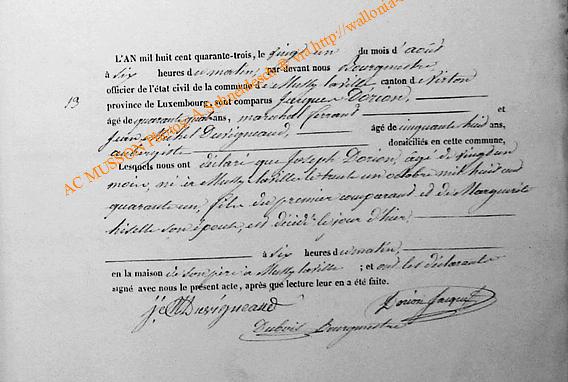 L'AN mil huit cent quarante-trois, le vingt un du mois d'août
à six heures du matin, par-devant nous Bourgmestre
officier de l'état civil de la commune de Mussy la ville canton de Virton
13 province de Luxembourg, sont comparus Jacques Dorion,
âgé de quarante quatre ans, marechal ferrant et
Jean Michel Duvigneaud, âgé de cinquante huit ans,
aubergiste domiciliés en cette commune,
Lesquels nous ont déclaré que Joseph Dorion, âgé de vingt un
mois, né à Mussy la ville le trente un octobre mil huit cent
quarante un, fils du premier comparant et de Marguerite
son épouse, est décédé le jour d'hier
à six heures du matin,
en la maison de son père à Mussy la ville ; et ont les déclarants
signé avec nous le présent acte, après que lecture leur en a été faite.
J M Duvigneaud
Dorion Jacques
Bourgmestre
AC MUSSON Photos A. Schneidesch @ via http://wallonia-